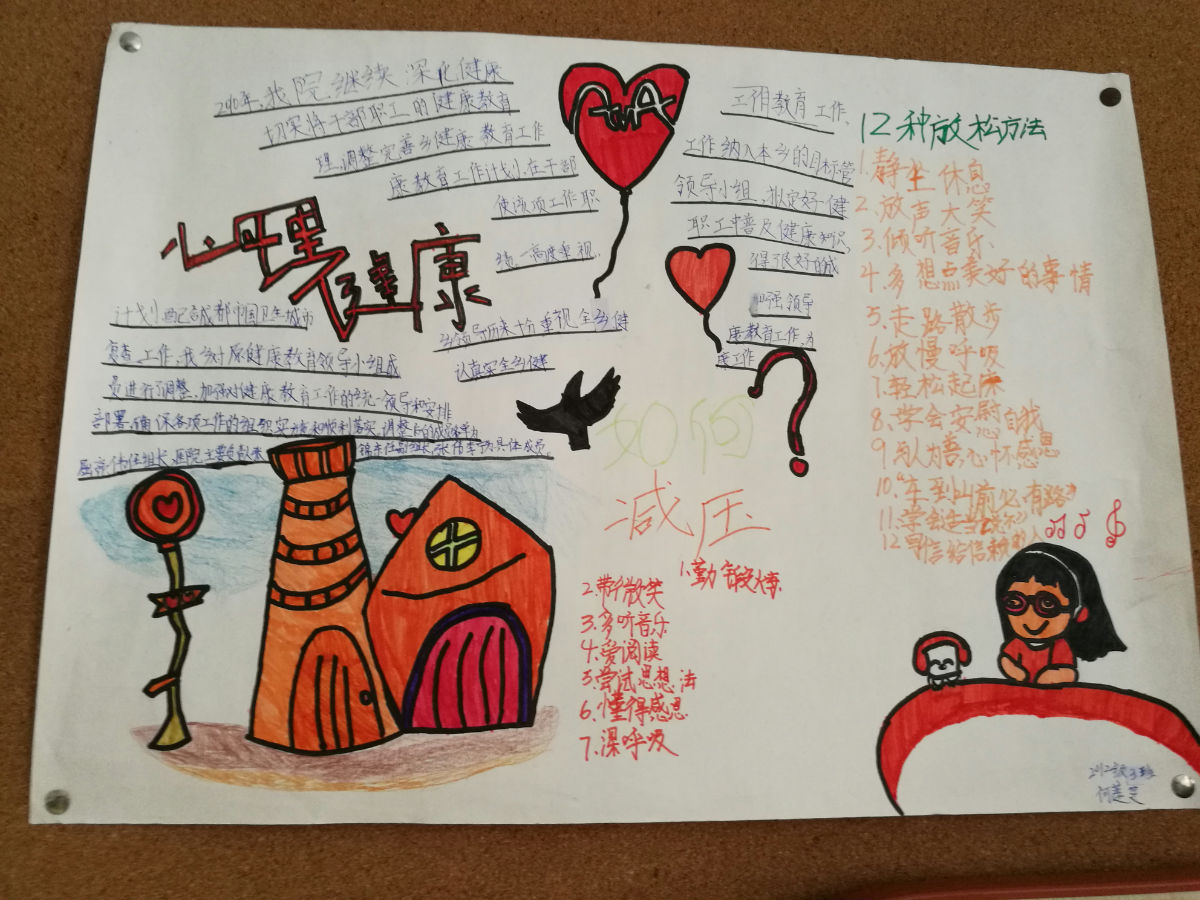 心理健康
2010年,我院继续 深化健康 工作教育工作,
切实将干部职工的健康教育 工作纳入本乡的目标管
理,调整完善乡健康教育工作 领导小组,拟定好健
康教育工作计划,在干部 职工中普及健康知识,
使该项工作职 得很好的成
绩,高度重视, 加强领导
乡领导历来十分重视全乡健 康教育工作,为
认真实全乡健 康工作
计划 成都 中国卫生城市
复查工作,我乡对原健康教育领导小组成
员进行了调整,加强对健康教育工作的统一领导和安排
部署,确保各项工作的组织实施和顺利落实,调整后的
任组长,医院主要负责人 任副组长, 具体成员,
如何
减压
1.勤锻炼
2.带微笑
3.多听音乐
4.爱阅读
5.尝试思想法
6.懂得感恩
7.深呼吸
12种放松方法
1.静坐休息
2.放声大笑
3.倾听音乐
4.多想点美好的事情
5.走路散步
6.放慢呼吸
7.轻松起床
8.学会安慰自我
9.与人为善,心怀感恩
10.“车到山前必有路”
11.学会
12写信给信赖的人
2012级3班